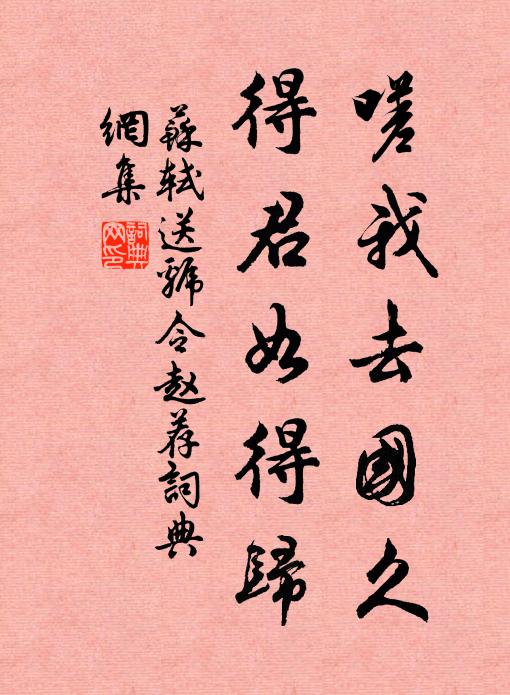 嗟我去國久
得君如得歸
蘇軾送號令趙荐詞典
網集
詞典網印